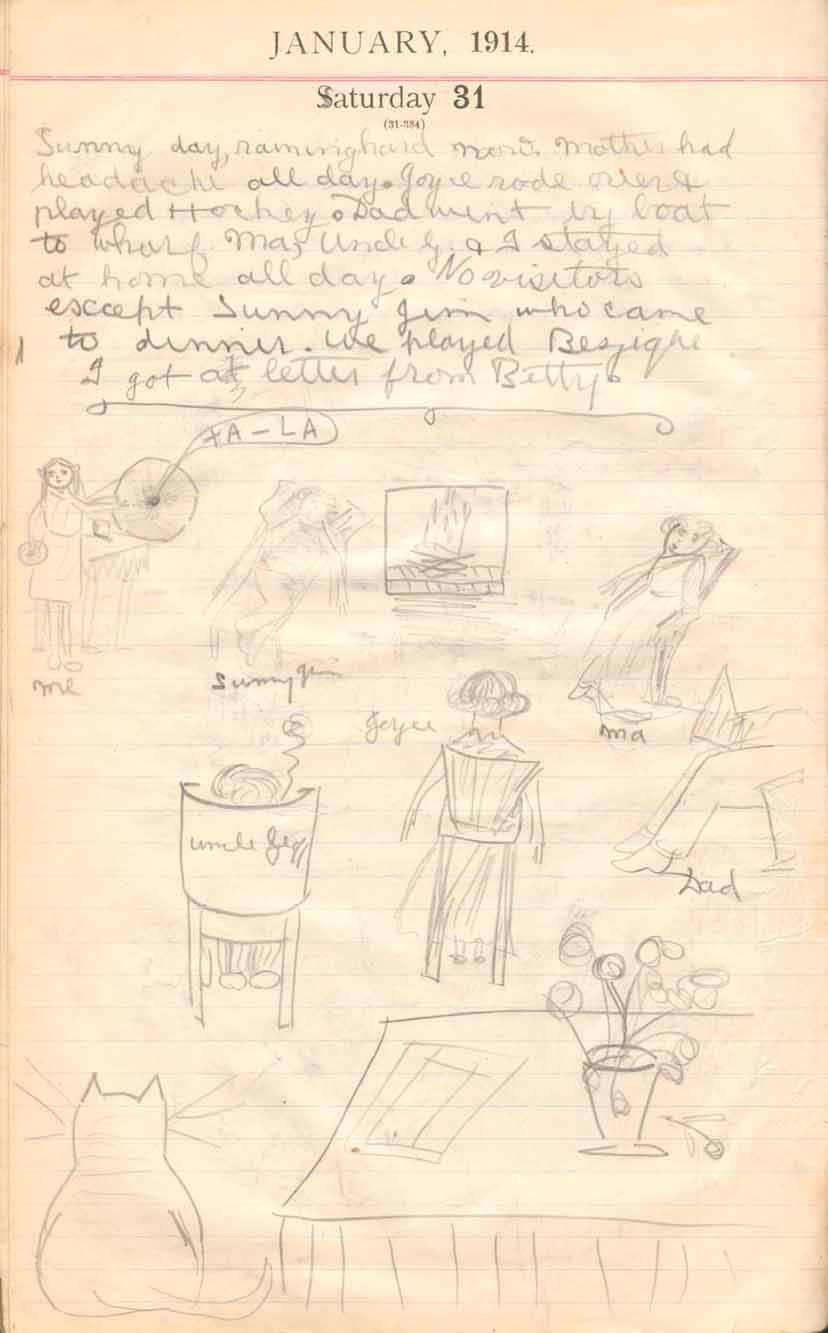 JANUARY, 1914.
Saturday 31
(31-334)
Sunny day, raining hard now. Mother had
headache all day. Joyce rode over &
played Hockey. Dad went by boat
to wharf. Ma, Uncle G. & I stayed
at home all day. No visitors
except Sunny Jim who came
to dinner. We played Bezique
I got a letter from Betty.
TA-LA
me
Sunny Jim
Joyce
Ma
Uncle
Dad